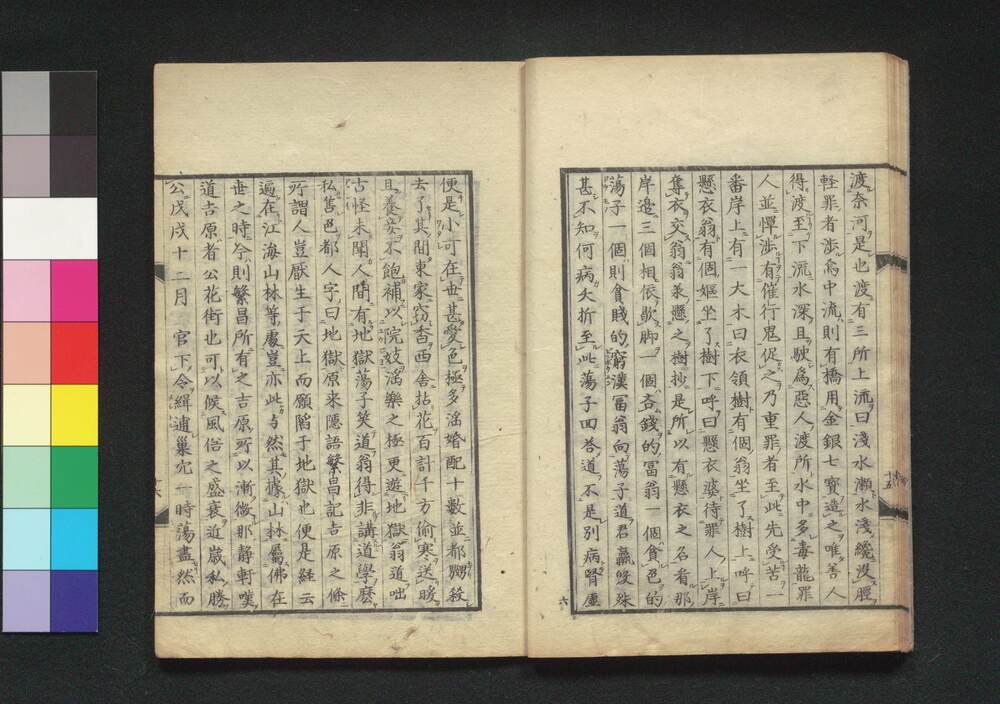 渡奈河是也渡有三所上流曰淺水瀬水淺纔沒脛
軽罪者渉焉中流則有橋用金銀七寳造之唯善人
得渡至下流水深且駛為惡人渡所水中多毒龍罪
人並憚渉有催行鬼促之乃重罪者至此先受苦一
番岸上有一大木曰衣領樹有個翁坐了樹上呼曰
懸衣翁有個嫗坐了樹下呼曰懸衣婆待罪人上岸
奪衣交翁翁承懸之樹抄是所以有懸衣之名看那
岸邉三個相依歇脚一個吝錢的冨翁一個貪色的
蕩子一個則貪賤的窮漢冨翁向蕩子道君羸痩殊
甚不知何病夭折至此蕩子回荅道不是別病腎虚
便是小可在世甚愛色極多滛婚配十數並都嬲殺
去了其間東家窃杏西舎拈花百計千方偷寒送暖
且養妾不飽補以院妓滛樂之極更遊地獄翁道咄
古怪未聞人間有地獄蕩子笑道翁得非講道學麽
私筥邑都人字曰地獄原来隠語繁昌記吉原之條
所謂人豈厭生于天上而願陷于地獄也便是経云
遍在江海山林等處豈亦此与然其據山林屬佛在
世之時今則繁昌所有之吉原所以漸微那静軒嘆
道吉原者公花街也可以候風俗之盛衰近歳私勝
公戊戌十二月　官下令緝逋巢穴一時蕩盡然而
六